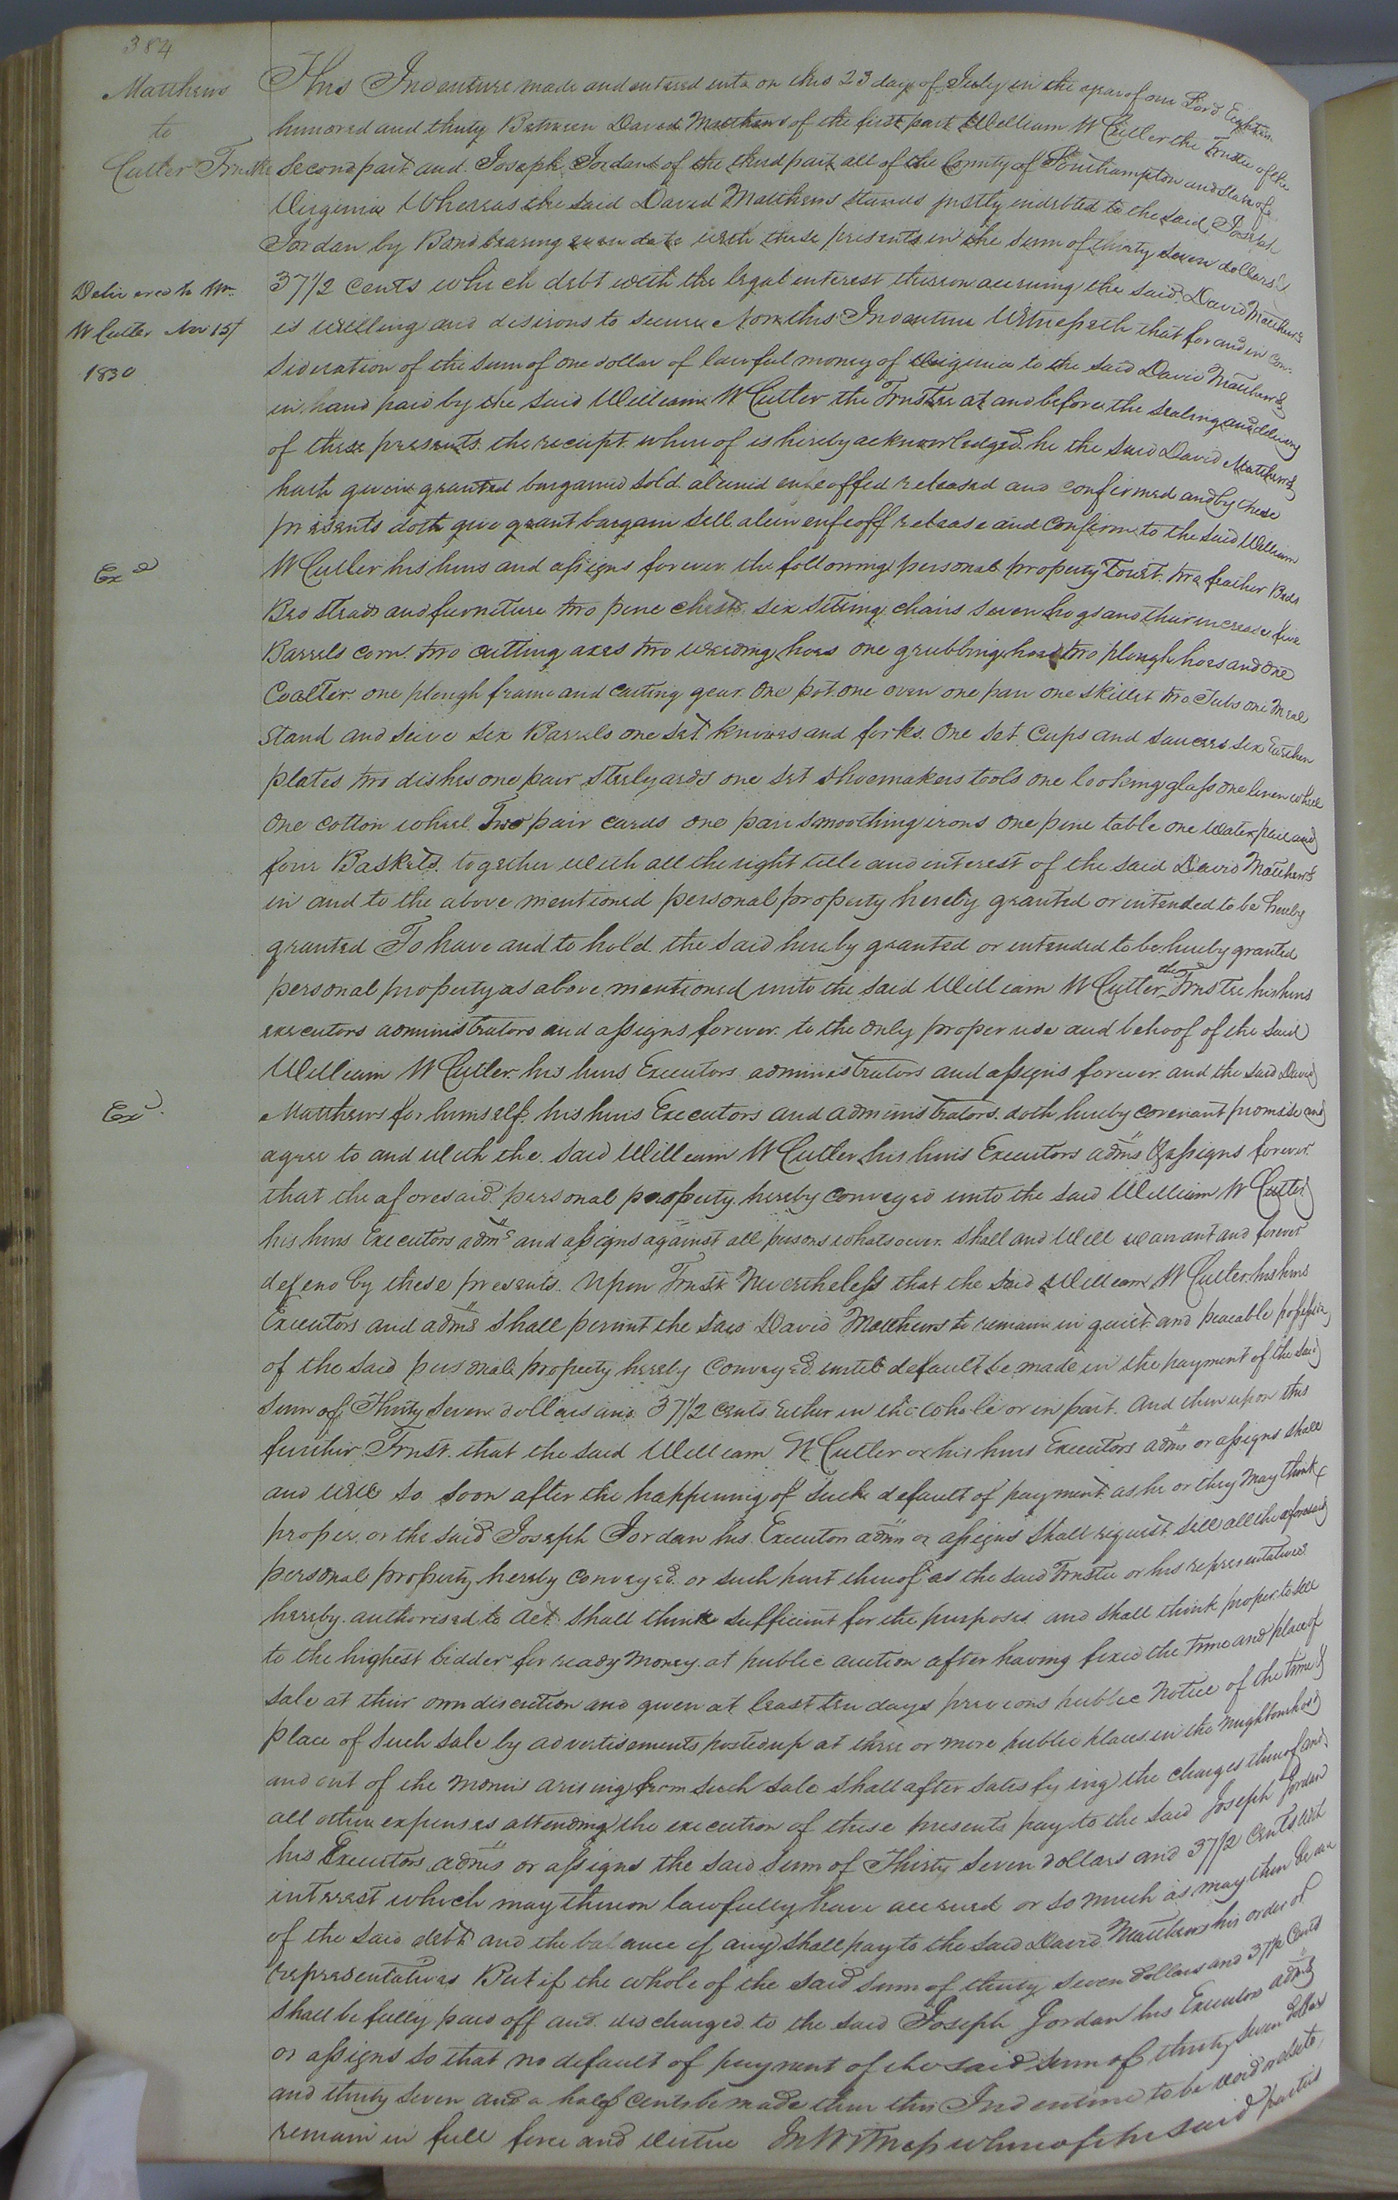 384
Matthews
to
Cutler Trustee
Deliverd to Wm.
W Cutler Nov 15th
1830
Exd
Exd
This Indenture made and entered into on this 23 day of July in the year of our Lord Eighteen
hundred and thirty Between David Matthews of the first part William W Cutler the Trustee of the
Second part and Joseph Jordan of the third part all of the County of Southampton and State of
Virginia Whereas the said David Matthews stands justly indebted to the said Joseph
Jordan by Bond bearing even date with these presents in the sum of thirty seven dollars &
37 1/2 cents which debt with the legal interest thereon accruing the said David Matthews
is willing and desirous to secure Now this Indenture Witnesseth that for and in con-
sideration of the sum of one dollar of lawful money of Virginia to the said David Matthews
in hand paid by the said William W Cutler the Trustee at and before the sealing and delivery
of these presents. the receipt whereof is hereby acknowledged. he the said David Matthews
hath given granted bargained sold aliened enfeoffed released and confirmed and by these
presents doth give grant bargain sell alien enfeoff release and confirm to the said William
W Cutler his heirs and assigns forever the following personal property Towit. two feather Beds
Bed steads and furniture two pine chests. six sitting chairs seven hogs and their increase five
Barrels corn. two cutting axes two weeding hoes one grubbing hoe two plough hoes and one
Coalter one plough frame and carting gear. One pot. one oven one pan one skillet two Tubs one meal
stand and seive six Barrels one set knives and forks. One set cups and saucers six Earthen
plates two dishes one pair steelyards one set shoemakers tools one looking glass one linen wheel
One cotton wheel Two pair cards one pair smoothing irons one pine table one water pail and
four Baskets. together with all the right title and interest of the said David Matthews
in and to the above mentioned personal property hereby granted or intended to be hereby
granted To have and to hold. the said hereby granted or intended to be hereby granted
personal property as above mentioned unto the said William W Cutler the Trustee his heirs
executors administrators and assigns forever. to the only proper use and behoof of the said
William W Cutler his heirs Executors administrators and assigns forever. and the said David
Matthews for himself. his heirs Executors and administrators. doth hereby covenant promise and
agree to and with the said William W Cutler his heirs Executors adms & assigns forever.
that the aforesaid personal property hereby conveyed unto the said William W Cutler
his heirs Executors adms and assigns against all persons whatsoever. shall and will warrant and forever
defend by these presents. Upon Trust Nevertheless that the said William W Cutler his heirs
Executors and adms shall permit the said David Matthews to remain in quiet and peacable possession
of the said personal property hereby conveyed. until default be made in the payment of the said
sum of Thirty Seven dollars and 37 1/2 cents either in the whole or in part. And then upon this
further Trust. that the said William W Cutler or his heirs Executors adms or assigns shall
and will so soon after the happening of such default of payment as he or they may think
proper. or the said Joseph Jordan his Executors adms or assigns shall request sell all the aforesaid
personal property hereby conveyed. or such part thereof as the said Trustee or his representatives
hereby authorised to act shall think sufficient for the purposes and shall think proper to sell
to the highest bidder for ready money at public auction after having fixed the time and place of
sale at their own discretion and given at least ten days previous public notice of the time &
place of such sale by advertisements posted up at three or more public places in the neighbourhood
and out of the monies arising from such sale shall after satisfying the charges thereof and
all other expenses attending the execution of these presents pay to the said Joseph Jordan
his Executors adms or assigns the said sum of Thirty Seven dollars and 37 1/2 cents with
interest which may thereon lawfully have accrued or so much as may then be due
of the said debt and the balance if any shall pay to the said David Matthews his order or
representatives But if the whole of the said sum of thirty seven dollars and 37 1/2 cents
shall be fully paid off and discharged to the said Joseph Jordan his Executors adms
or assigns so that no default of payment of the said sum of thirty seven dollars
and thirty seven and a half cents be made then this Indenture to be void or else to
remain in full force and virtue In Witness whereof the said parties